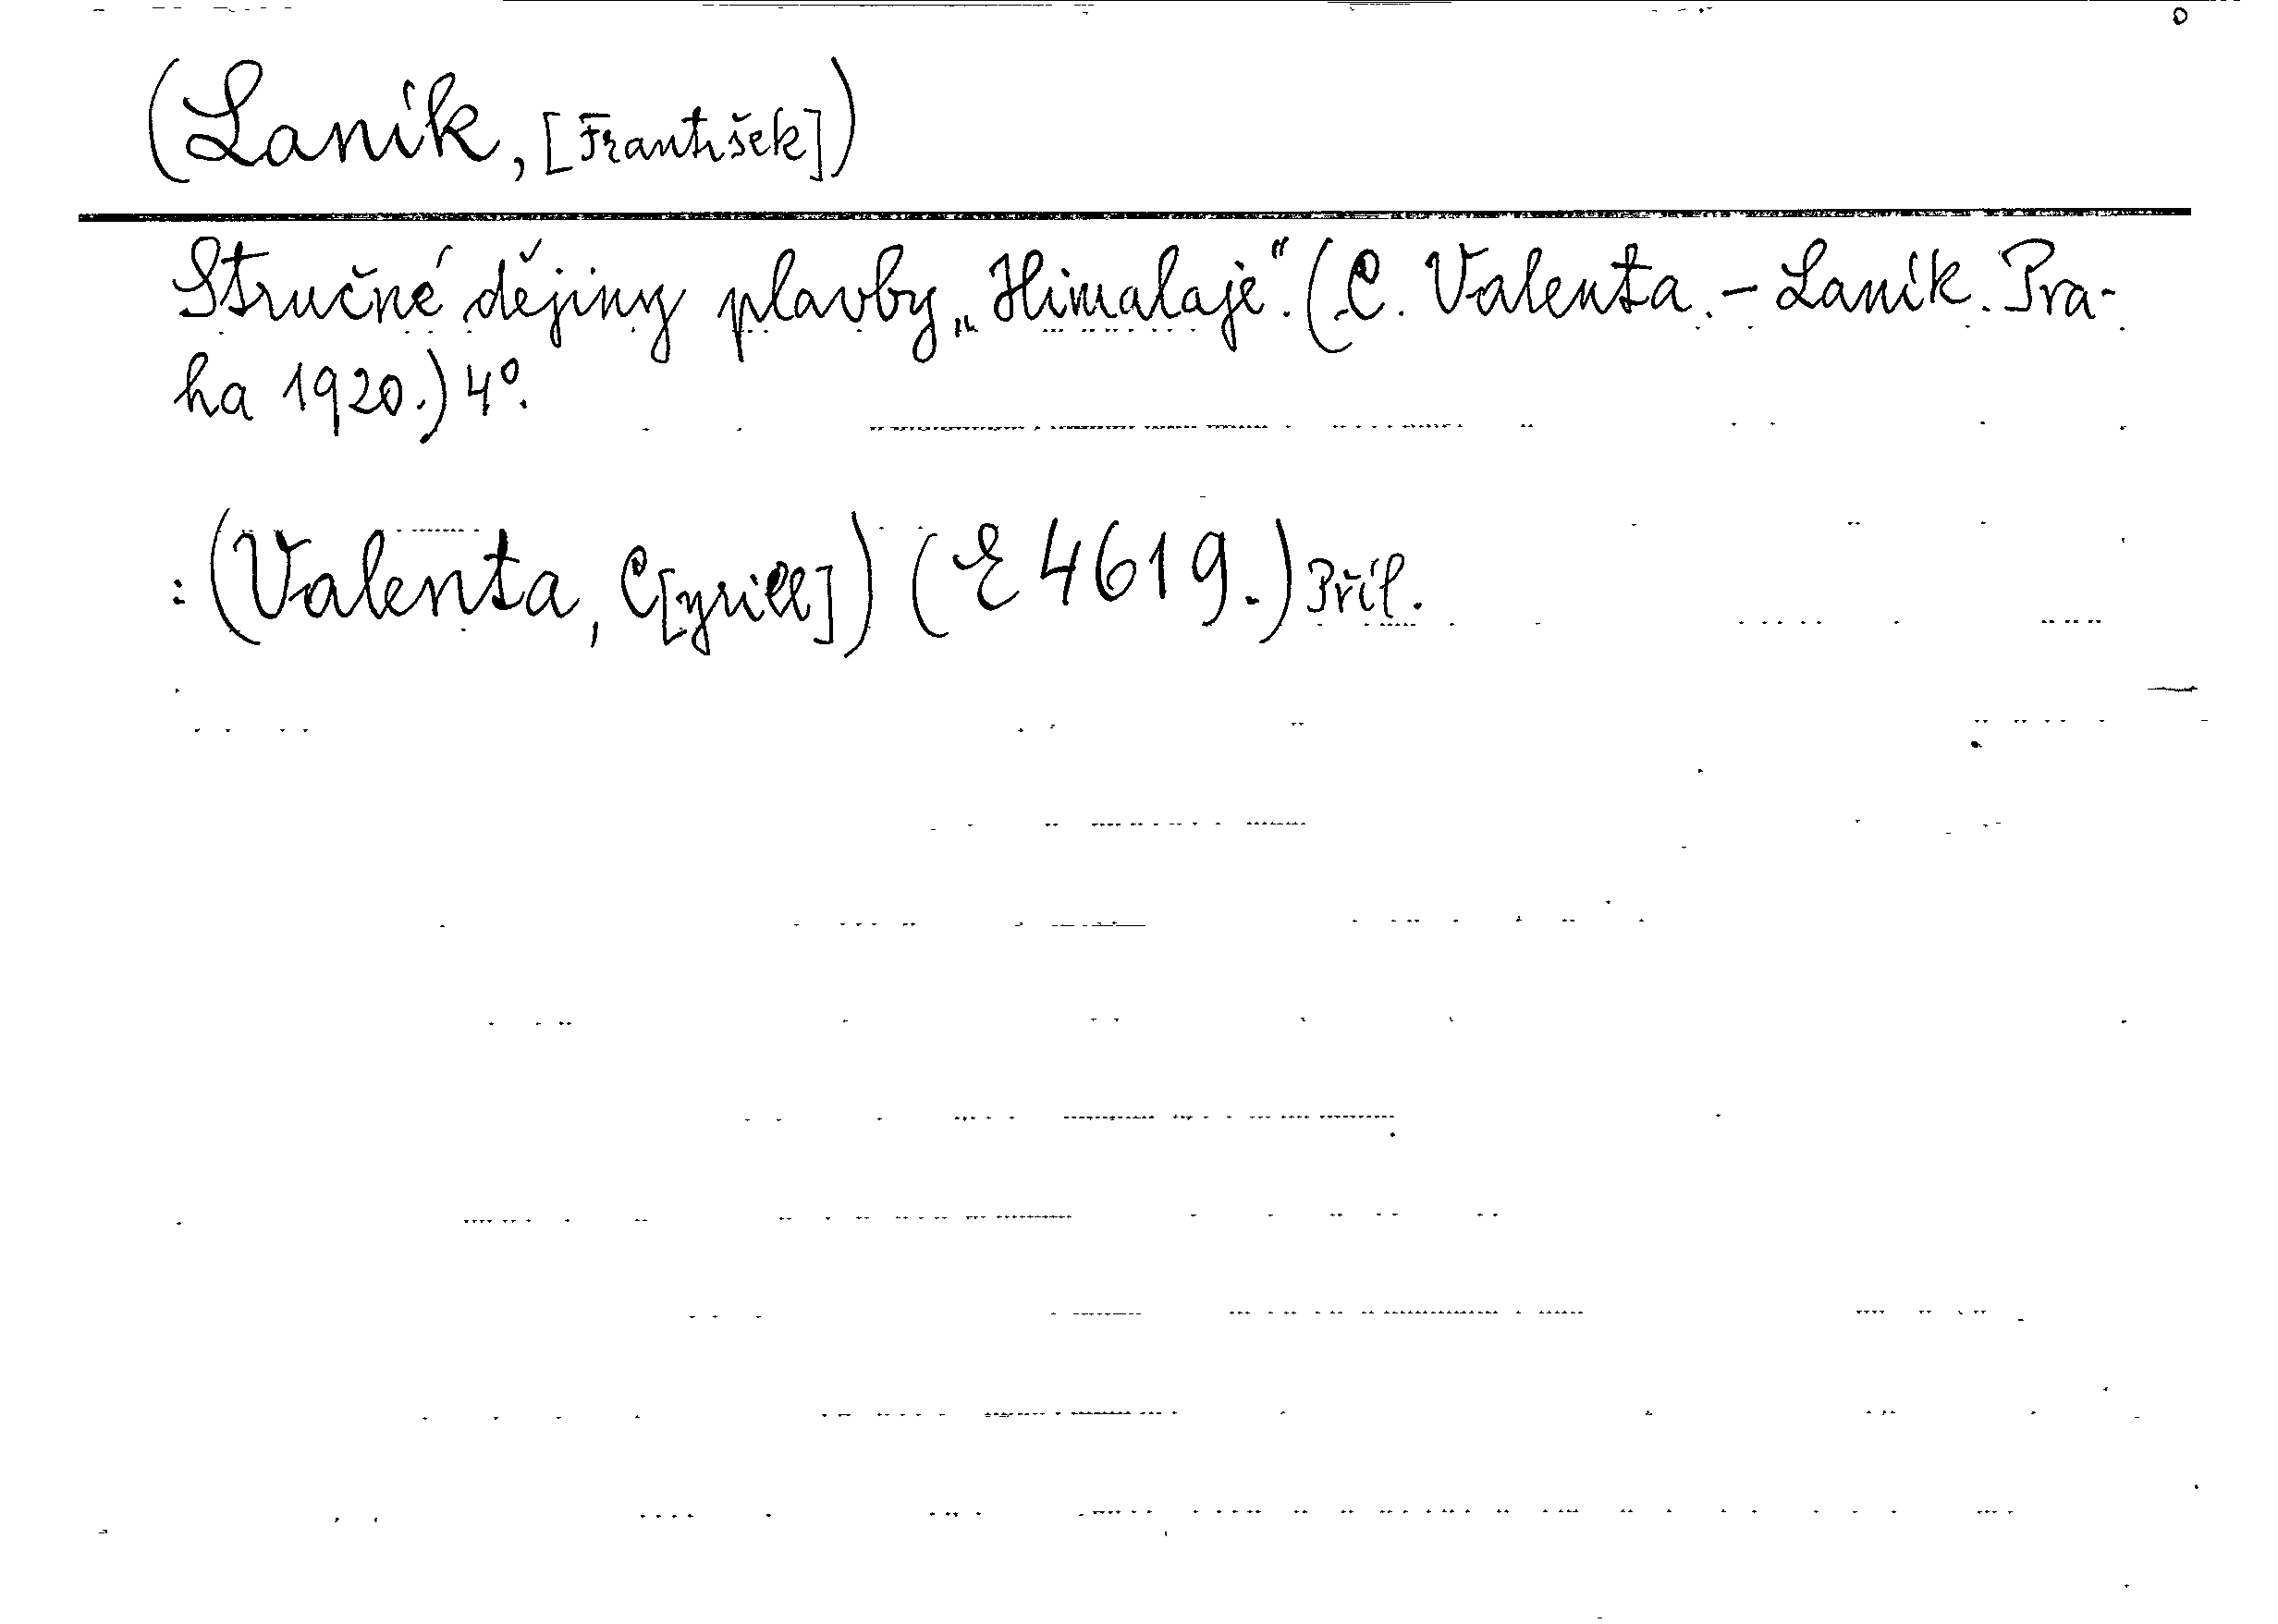 (Laník, [František])
Stručné dějiny plavby „Himalaje“. (C. Valenta. – Laník. Pra-
ha 1920.) 4º.
: (Valenta, C[yrill]) (E 4619.) Příl.